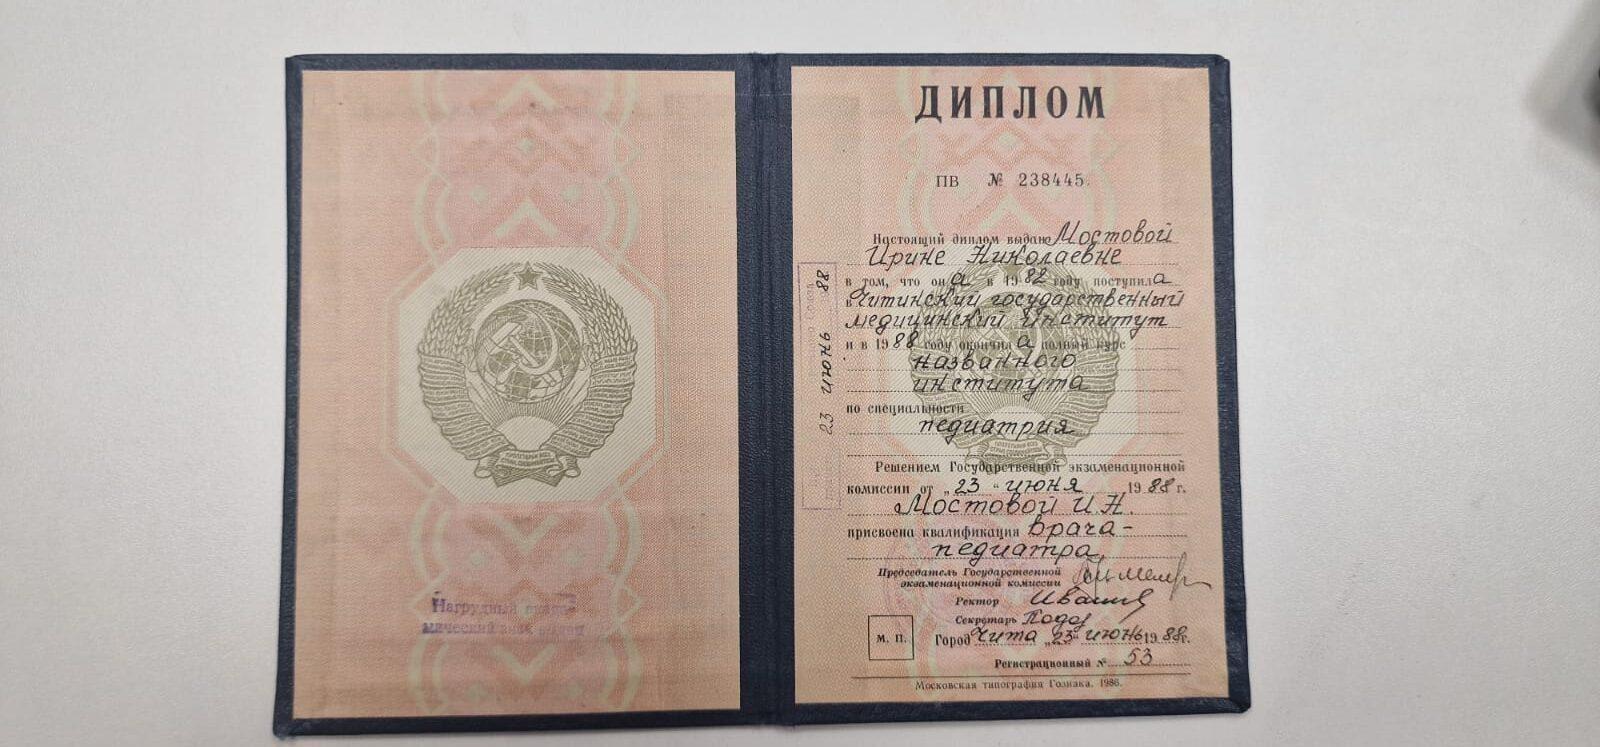 Нагрудный
мический знак
ДИПЛОМ
ПВ № 238445.
Настоящий диплом выдан Мостовой
Ирине Николаевне
в том, что он а в 1982 году поступил а
в Читинский государственный
медицинский институт
и в 1988 году окончил а полный курс
названного
института
по специальности
педиатрия
Решением Государственной экзаменационной
комиссии от „23" июня 1988 г.
Мостовой И.Н.
присвоена квалификация врача-
педиатра
Председатель Государственной
экзаменационной комиссии
Ректор
Секретарь
М. П. Город Чита „23" июнь 1988 г.
Регистрационный № 53
Московская типография Гознака. 1986.
23 июнь 88